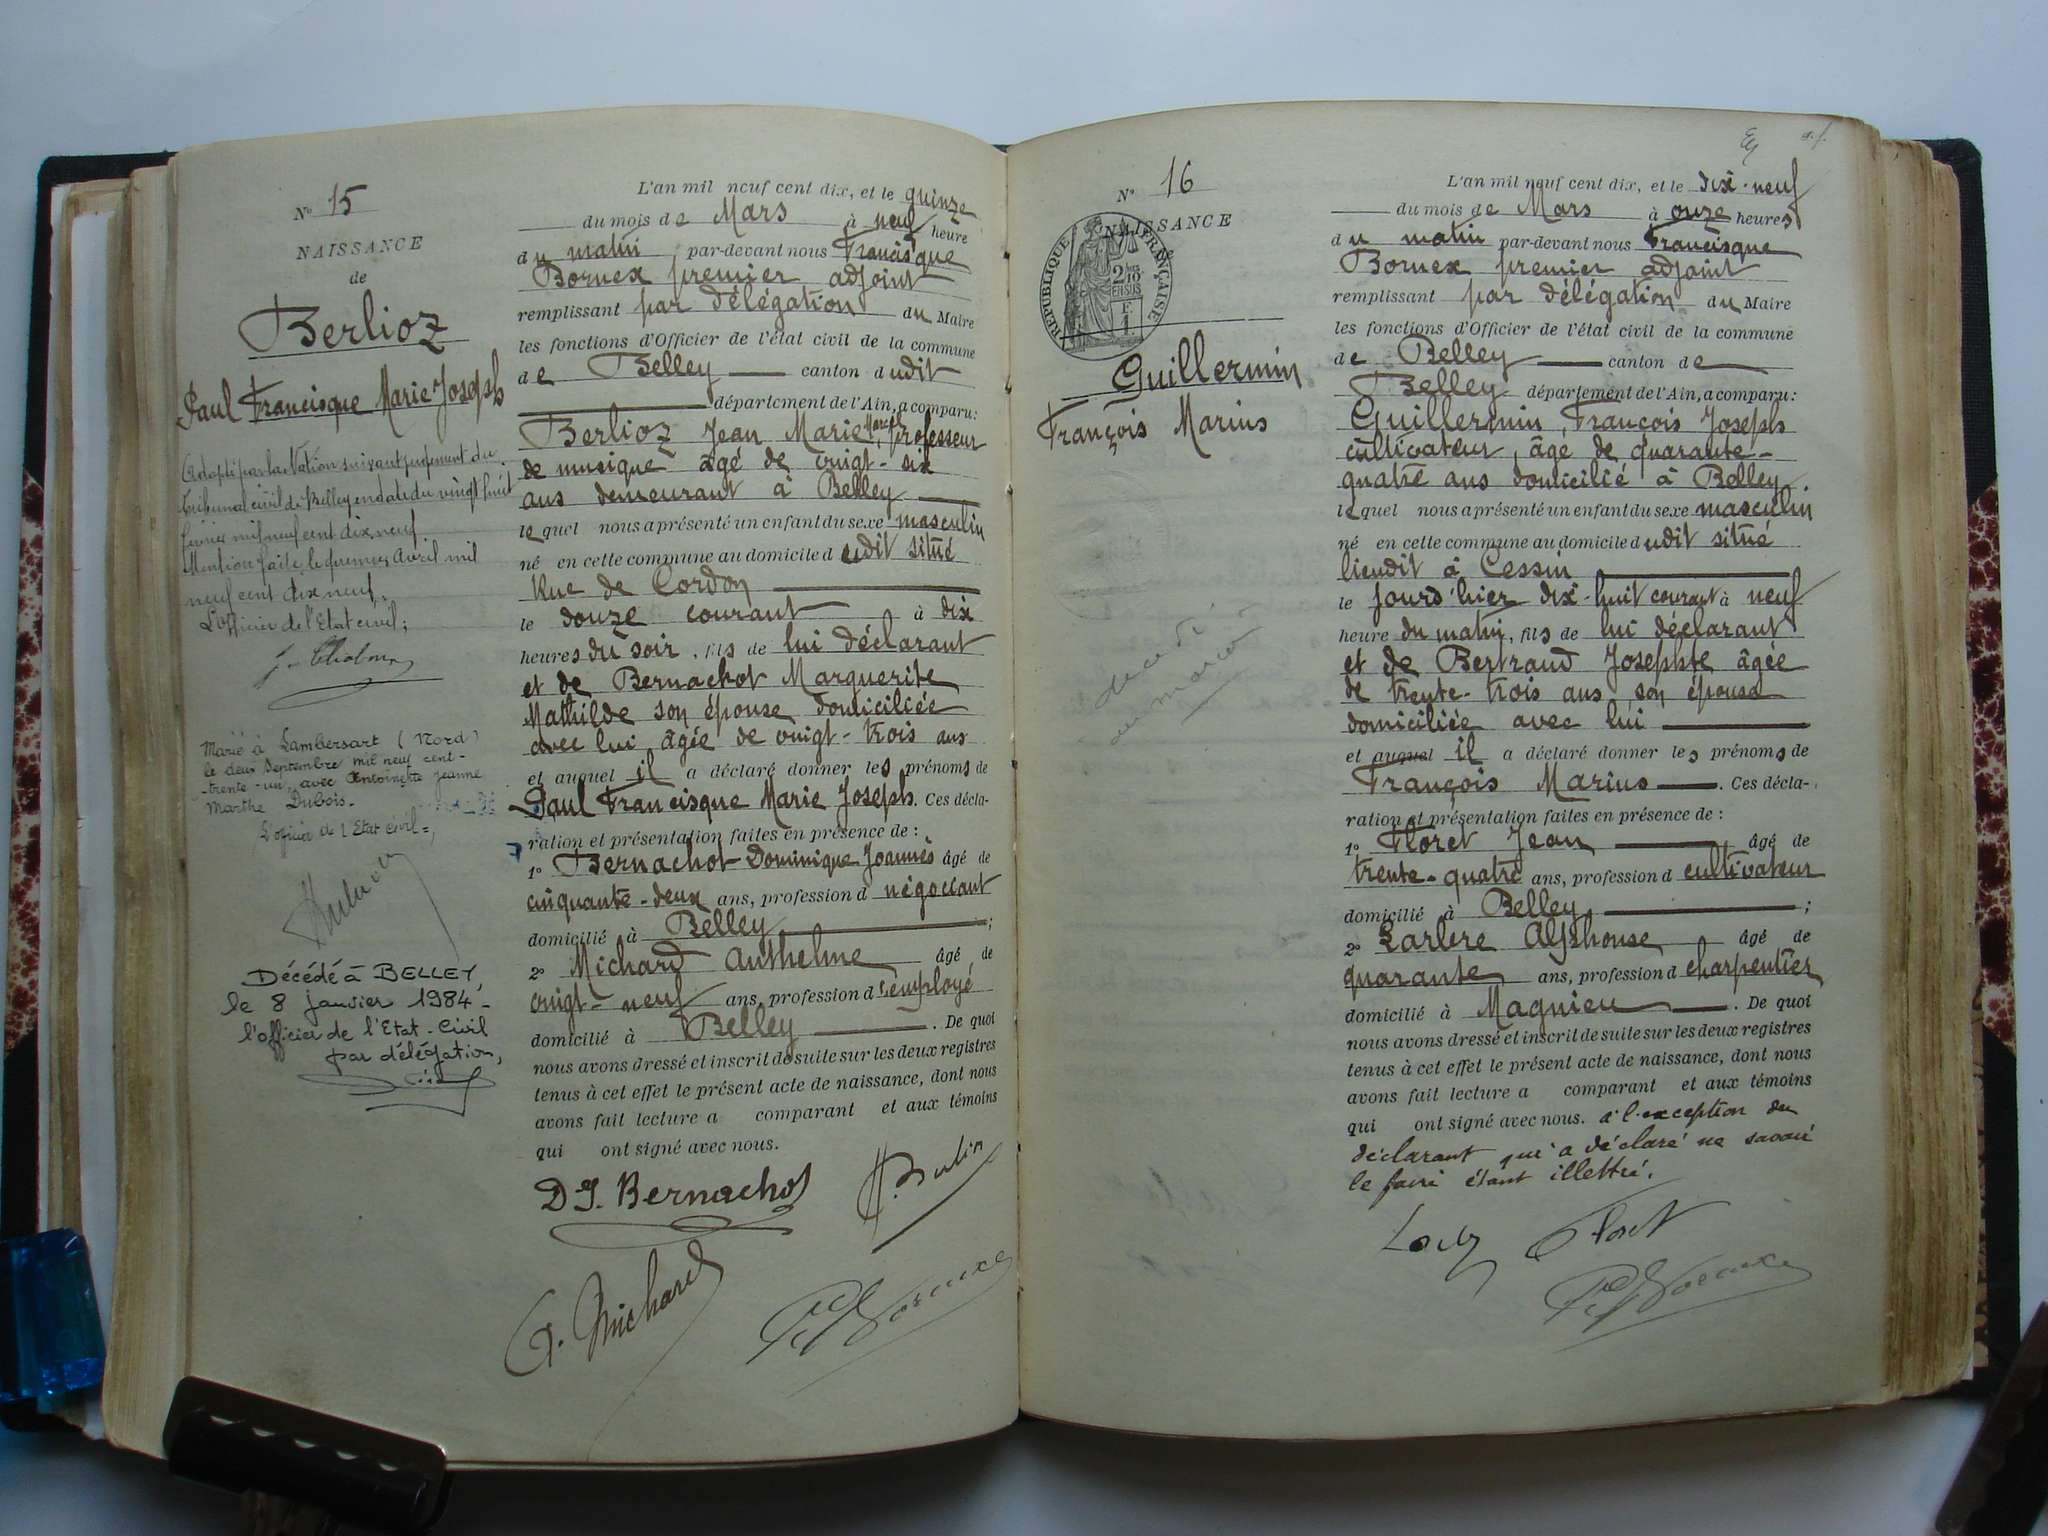 N° 15
NAISSANCE
de
Berlioz
Paul Francisque Marie Joseph
Adopté par la Nation suivant jugement du
tribunal civil de Belley en date du vingt huit
février mil neuf cent dix neuf
Mention faite le premier Avril mil
neuf cent dix neuf.
L'officier de l'Etat civil;
Marié à Lambersart (Nord)
le deux Septembre mil neuf cent-
-trente-un, avec Antoinette Jeanne
Marthe Dubois-
L'officier de l'Etat civil=,
Décédé à BELLEY,
le 8 janvier 1984-
l'officier de l'Etat-Civil
par délégation,
L'an mil neuf cent dix, et le quinze
du mois de Mars à neuf heure
du matin par-devant nous Francisque
Bornex premier adjoint
remplissant par délégation du Maire
les fonctions d'Officier de l'état civil de la commune
de Belley canton dudit
département de l'Ain, a comparu:
Berlioz Jean Marie Joseph, professeur
de musique âgé de vingt-six
ans demeurant à Belley
lequel nous a présenté un enfant du sexe masculin
né en cette commune au domicile dudit situé
Rue de Cordon
le douze courant à dix
heures du soir, fils de lui déclarant
et de Bernachot Marguerite
Mathilde son épouse domiciliée
avec lui âgée de vingt-trois ans
et auquel il a déclaré donner les prénoms de
Paul Francisque Marie Joseph. Ces décla-
ration et présentation faites en présence de :
1° Bernachot Dominique Joannès âgé de
cinquante-deux ans, profession d négociant
domicilié à Belley ;
2° Michard Anthelme âgé de
vingt-neuf ans, profession d'employé
domicilié à Belley . De quoi
nous avons dressé et inscrit de suite sur les deux registres
tenus à cet effet le présent acte de naissance, dont nous
avons fait lecture a comparant et aux témoins
qui ont signé avec nous.
D J. Bernachot
A. Michard
N° 16
NAISSANCE
RÉPUBLIQUE FRANÇAISE
2/10 EN SUS
1 F.
Guillermin
François Marius
décédé
au maroc
L'an mil neuf cent dix, et le dix-neuf
du mois de Mars à onze heures
du matin par-devant nous Francisque
Bornex premier adjoint
remplissant par délégation du Maire
les fonctions d'Officier de l'état civil de la commune
de Belley canton de
Belley département de l'Ain, a comparu:
Guillermin, François Joseph
cultivateur, âgé de quarante-
quatre ans domicilié à Belley.
lequel nous a présenté un enfant du sexe masculin
né en cette commune au domicile dudit situé
lieudit à Cessin
le jourd'hier dix-huit courant à neuf
heure du matin, fils de lui déclarant
et de Bertrand Josephte âgée
de trente-trois ans son épouse
domiciliée avec lui
et auquel il a déclaré donner les prénoms de
François Marius . Ces décla-
ration et présentation faites en présence de :
1° Floret Jean âgé de
trente-quatre ans, profession d cultivateur
domicilié à Belley ;
2° Alphonse âgé de
quarante ans, profession d charpentier
domicilié à Magnieu . De quoi
nous avons dressé et inscrit de suite sur les deux registres
tenus à cet effet le présent acte de naissance, dont nous
avons fait lecture a comparant et aux témoins
qui ont signé avec nous. à l'exception du
déclarant qui a déclaré ne savoir
le faire étant illettré.
Floret